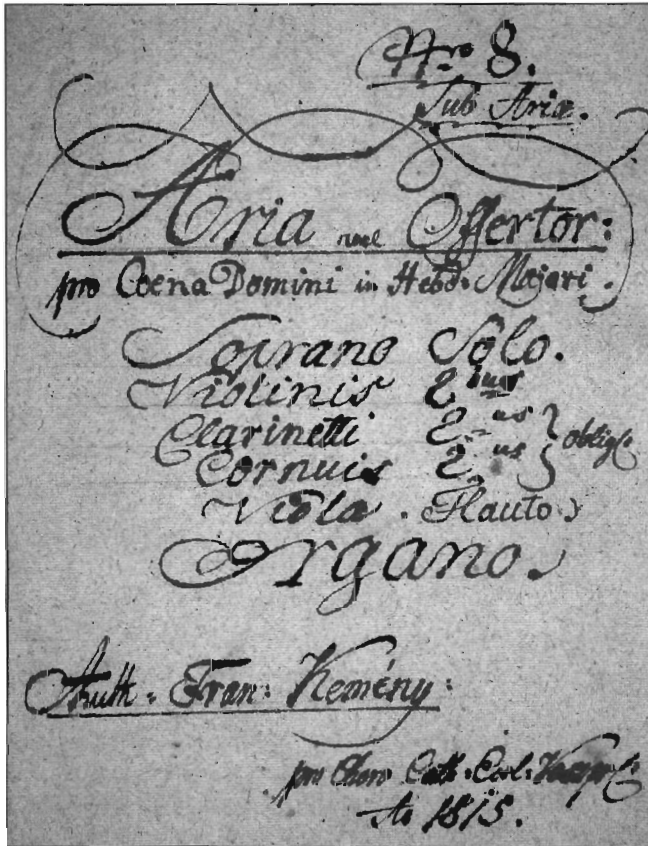 Nro 8.
Sub Ariæ.
Aria vel Offertor:
pro Coena Domini in Hebd. Majori.
Soprano Solo.
Violinis 2bus
Clarinetti 2us
Cornuis 2us } obligti
Viola. Flauto
Organo.
Auth. Fran: Kemény:
pro Choro Cath. Eccl.
Ao 1815.